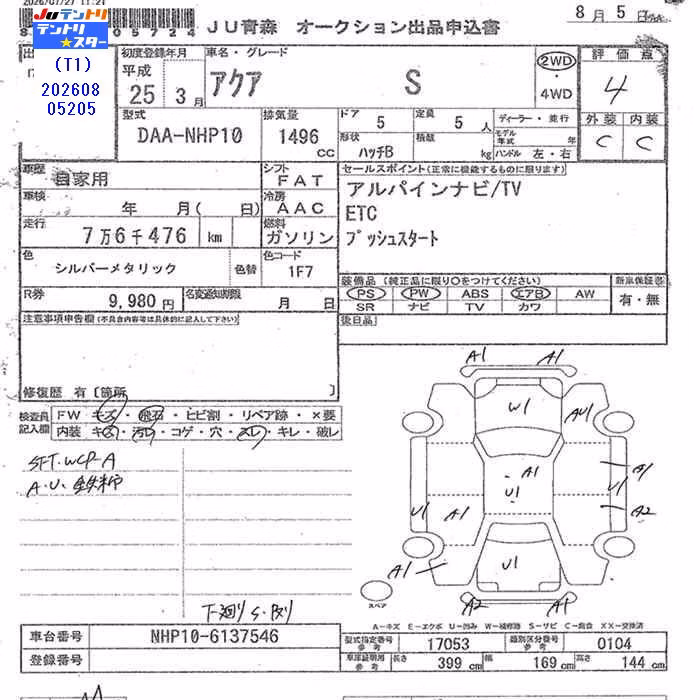 2026/07/27 11:21
JUテントリ
テントリ★スター
(T1)
202608
05205
05724
JU青森 オークション出品申込書
8月5日
初度登録年月
平成
25 3月
車名・グレード
アクア S
2WD
・
4WD
評価点
4
外装 内装
C C
型式
DAA-NHP10
排気量
1496
CC
ドア
5
定員
5人
形状
ハッチB
積載
kg
ディーラー・並行
モデル年式 年
ハンドル 左・右
車歴
自家用
シフト
FAT
車検
年 月( 日)
冷房
AAC
走行
7万6千476 km
燃料
ガソリン
色
シルバーメタリック
色替
色コード
1F7
R券
9,980円
名変通知期限
月 日
セールスポイント(正常に機能するものに限ります)
アルパインナビ/TV
ETC
プッシュスタート
装備品(純正品に限り○をつけてください)
PS PW ABS エアB AW
SR ナビ TV カワ
新車保証書
有・無
後日品
注意事項申告欄(不具合内容等は具体的に記入して下さい)
修復歴 有〔箇所 〕
検査員
記入欄
FW キズ・飛石・ヒビ割・リペア跡・×要
内装 キズ・汚れ・コゲ・穴・スレ・キレ・破レ
SFT.WCP-A
A.U.鉄粉
下廻りS.反り
A1 A1
W1
AU1
A1
A1
U1
U1
A1
U1
A2
A1
U1
A2 A1
スペア
A-キズ E-エクボ U-凹み W-補修跡 S-サビ C-腐食 XX-交換済
車台番号
NHP10-6137546
登録番号
型式指定番号
参考
17053
類別区分番号
参考
0104
車庫証明用
参考
長さ 399 cm 幅 169 cm 高さ 144 cm